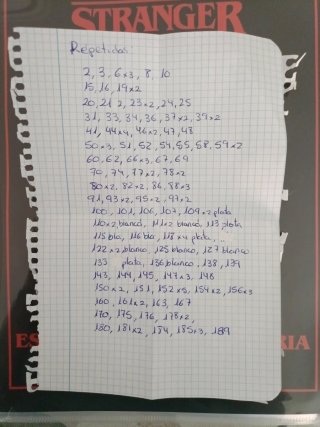 STRANGER
Repetidos
2, 3, 6x3, 8, 10
15, 16, 19x2
20, 21 2, 23x2, 24, 25
31, 33, 34, 36, 37x2, 39x2
41, 44x4, 46x2, 47, 48
50x3, 51, 52, 54, 55, 58, 59x2
60, 62, 66x3, 67, 69
70, 74, 77x2, 78x2
80x2, 82x2, 86, 88x3
91, 93x2, 95x2, 97x2
100, 101, 106, 107, 109x2 plata
110x2 blanco, 111x2 blanco, 113 plata
115 bla, 116 bla, 118x4 plata,
122x2 blanco, 125 blanco, 127 blanco
133 plata, 136 blanco, 138, 139
143, 144, 145, 147x3, 148
150x2, 151, 152x5, 154x2, 156x3
160, 161x2, 163, 167
170, 175, 176, 178x2,
180, 181x2, 184, 185x3, 189
ES
RIA